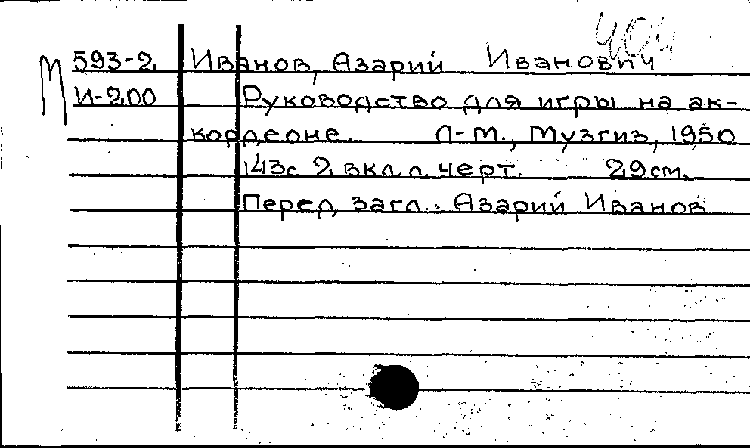 404
М 593-2 Иванов, Азарий Иванович
И-200 Руководство для игры на ак-
кордеоне. Л-М., Музгиз, 1950
143с 2 вкл.л. черт. 29см.
Перед загл.: Азарий Иванов